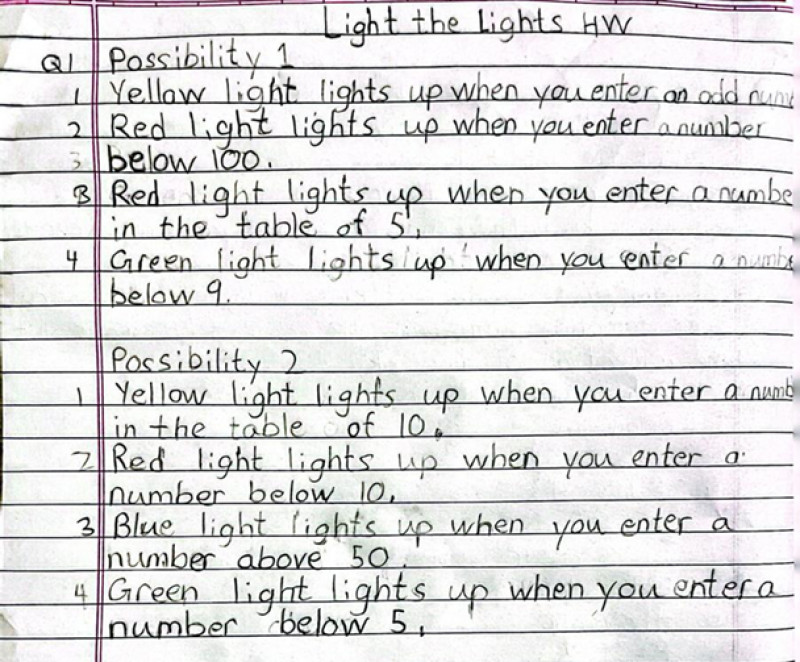 Light the Lights HW
Q1 Possibility 1
1 Yellow light lights up when you enter an odd num
2 Red light lights up when you enter a number
3 below 100.
3 Red light lights up when you enter a numbe
in the table of 5.
4 Green light lights up when you enter a numbe
below 9.
Possibility 2
1 Yellow light lights up when you enter a numb
in the table of 10.
2 Red light lights up when you enter a
number below 10.
3 Blue light lights up when you enter a
number above 50.
4 Green light lights up when you enter a
number below 5.